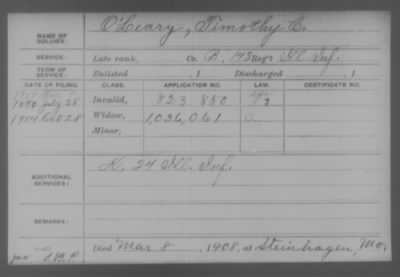 O'Leary, Timothy C.
NAME OF SOLDIER:
SERVICE: Late rank, Co. A, 143 Reg't Ill. Inf.
TERM OF SERVICE: Enlisted , 1 Discharged , 1
DATE OF FILING. CLASS. APPLICATION NO. LAW. CERTIFICATE NO.
1890 July 25 Invalid, 823 850
Oct 28 Widow, 1,036,061
Minor,
ADDITIONAL SERVICES: K, 24 Ill. Inf.
REMARKS:
Died Mar 8, 1908, at Steinhagen, Mo.